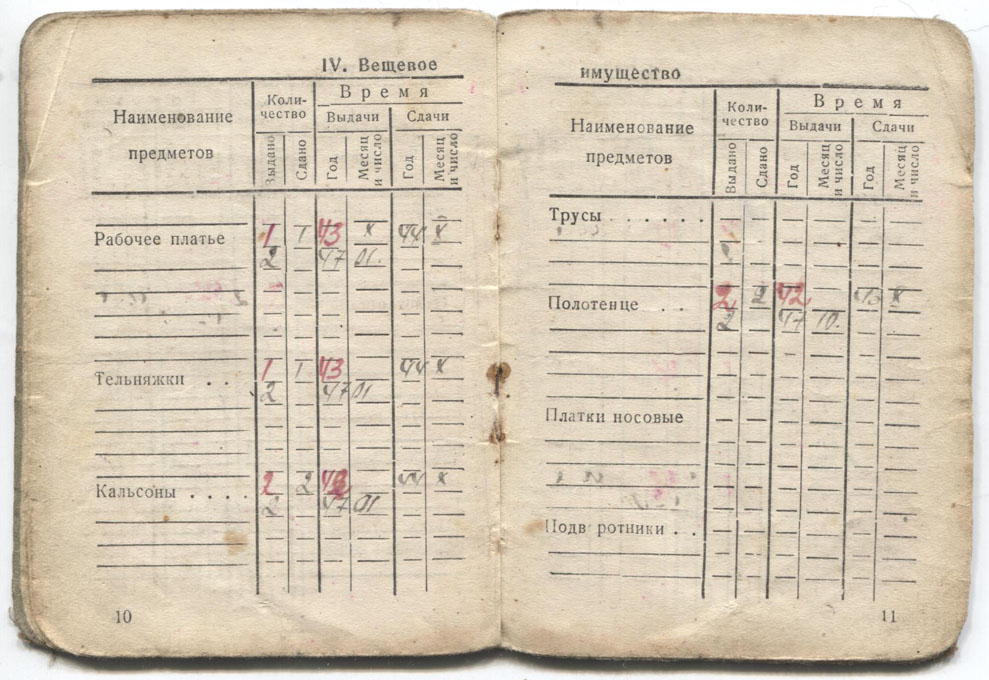 IV. Вещевое
Наименование предметов
Коли-
чество
Время
Выдачи Сдачи
Выдано Сдано Год Месяц и число Год Месяц и число
Рабочее платье 1 1 43 X 44 X
2 47 01.
Тельняжки . . 1 1 43 44 X
2 47 01
Кальсоны . . . . 2 2 43 44 X
2 47 01
10
имущество
Наименование предметов
Коли-
чество
Время
Выдачи Сдачи
Выдано Сдано Год Месяц и число Год Месяц и число
Трусы . . . . . .
2
Полотенце . . 2 2 42 43 X
2 47 10.
Платки носовые
Подв ротники . .
11